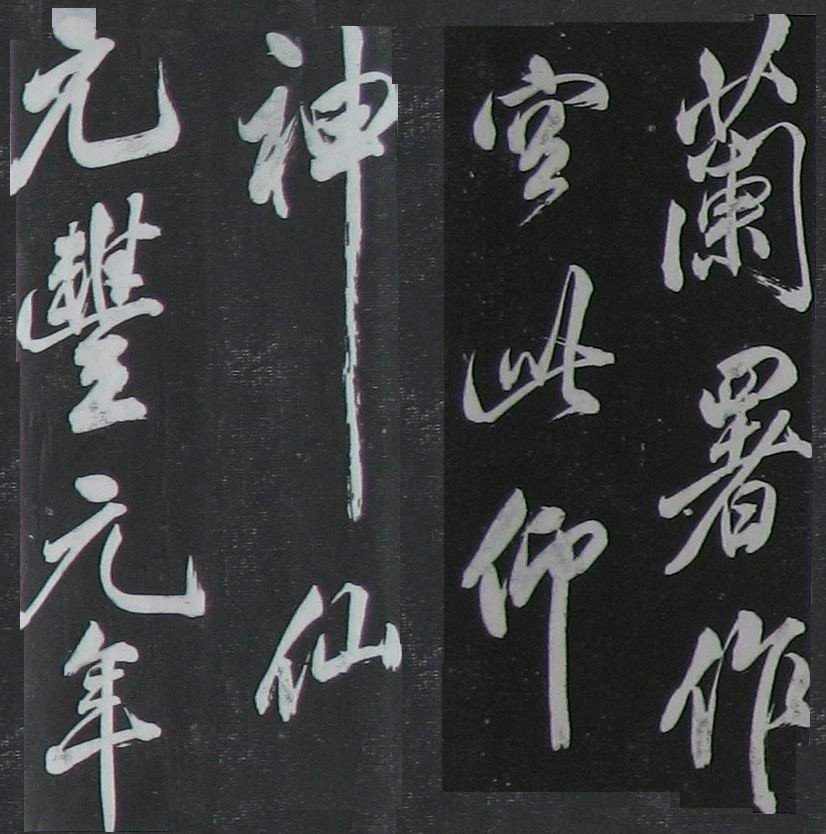 蘭署作
空此仰
神仙
元豐元年